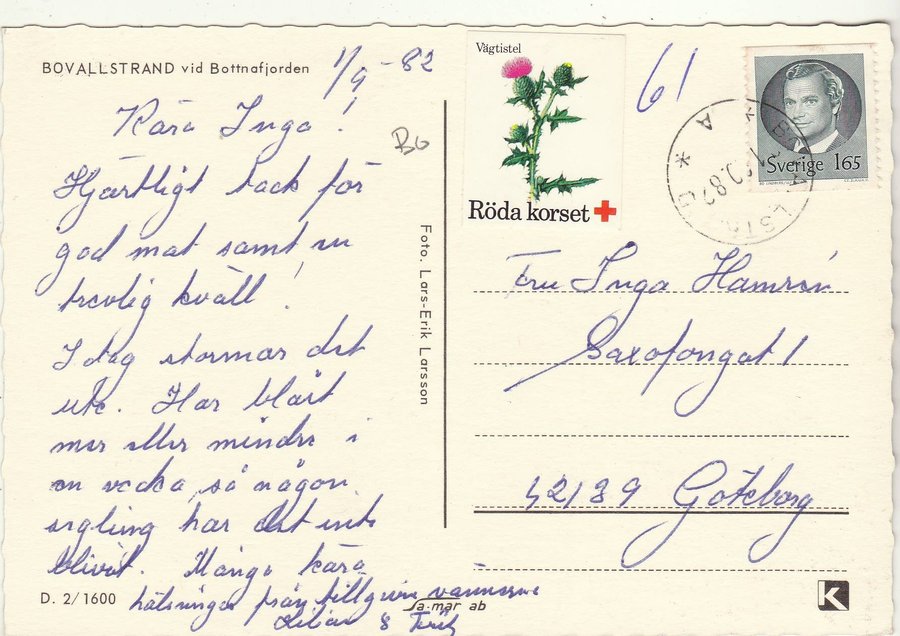 BOVALLSTRAND vid Bottnafjorden
1/9 -82
Kära Inga!
Hjärtligt tack för
god mat samt en
trevlig kväll!
I dag stormar det
ute. Har blåst
mer eller mindre i
en vecka, så någon
segling har det inte
blivit. Många kära
hälsningar från tillgivne vännerna
Lilian &
BG
Foto. Lars-Erik Larsson
D. 2/1600
a-mar ab
Vägtistel
Röda korset
61
Sverige 165
Fru Inga Hamrén
Saxofongat 1
42139 Göteborg
K